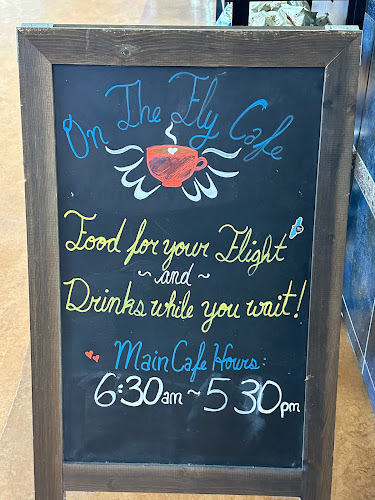 On The Fly Cafe
Food for your Flight
~ and ~
Drinks while you wait!
Main Cafe Hours:
6:30am ~ 530pm